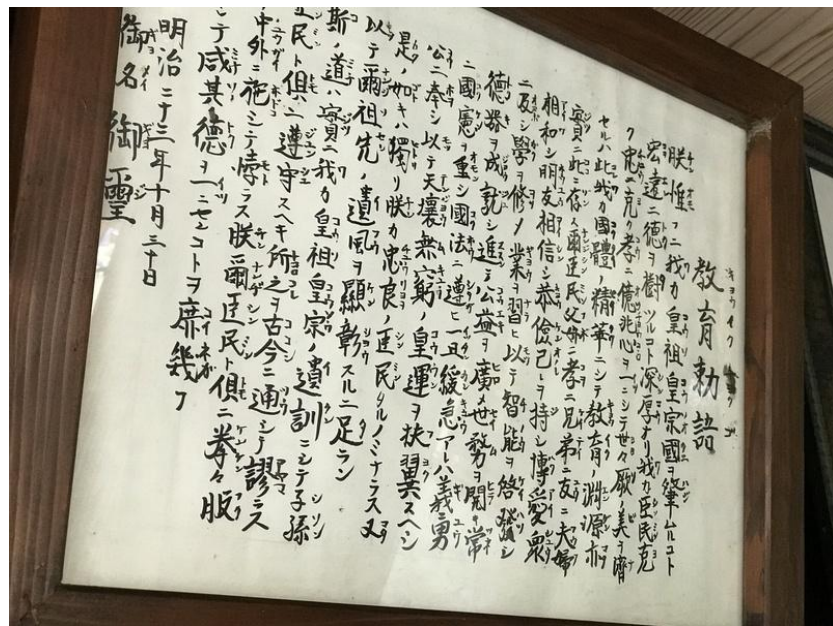 教育勅語
朕惟フニ我カ皇祖皇宗國ヲ肇ムルコト
宏遠ニ德ヲ樹ツルコト深厚ナリ我カ臣民克
ク忠ニ克ク孝ニ億兆心ヲ一ニシテ世々厥ノ美ヲ濟
セルハ此レ我カ國體ノ精華ニシテ教育ノ淵源亦
實ニ此ニ存ス爾臣民父母ニ孝ニ兄弟ニ友ニ夫婦
相和シ朋友相信シ恭儉己レヲ持シ博愛衆
ニ及シ學ヲ修メ業ヲ習ヒ以テ智能ヲ啓發シ
德器ヲ成就シ進テ公益ヲ廣メ世務ヲ開キ常
ニ國憲ヲ重シ國法ニ遵ヒ一旦緩急アレハ義勇
公ニ奉シ以テ天壤無窮ノ皇運ヲ扶翼スヘシ
是ノ如キハ獨リ朕カ忠良ノ臣民タルノミナラス又
以テ爾祖先ノ遺風ヲ顯彰スルニ足ラン
斯ノ道ハ實ニ我カ皇祖皇宗ノ遺訓ニシテ子孫
臣民ト俱ニ遵守スヘキ所之ヲ古今ニ通シテ謬ラス
中外ニ施シテ悖ラス朕爾臣民ト俱ニ拳々服
シテ咸其德ヲ一ニセンコトヲ庶幾フ
明治二十三年十月三十日
御名御璽